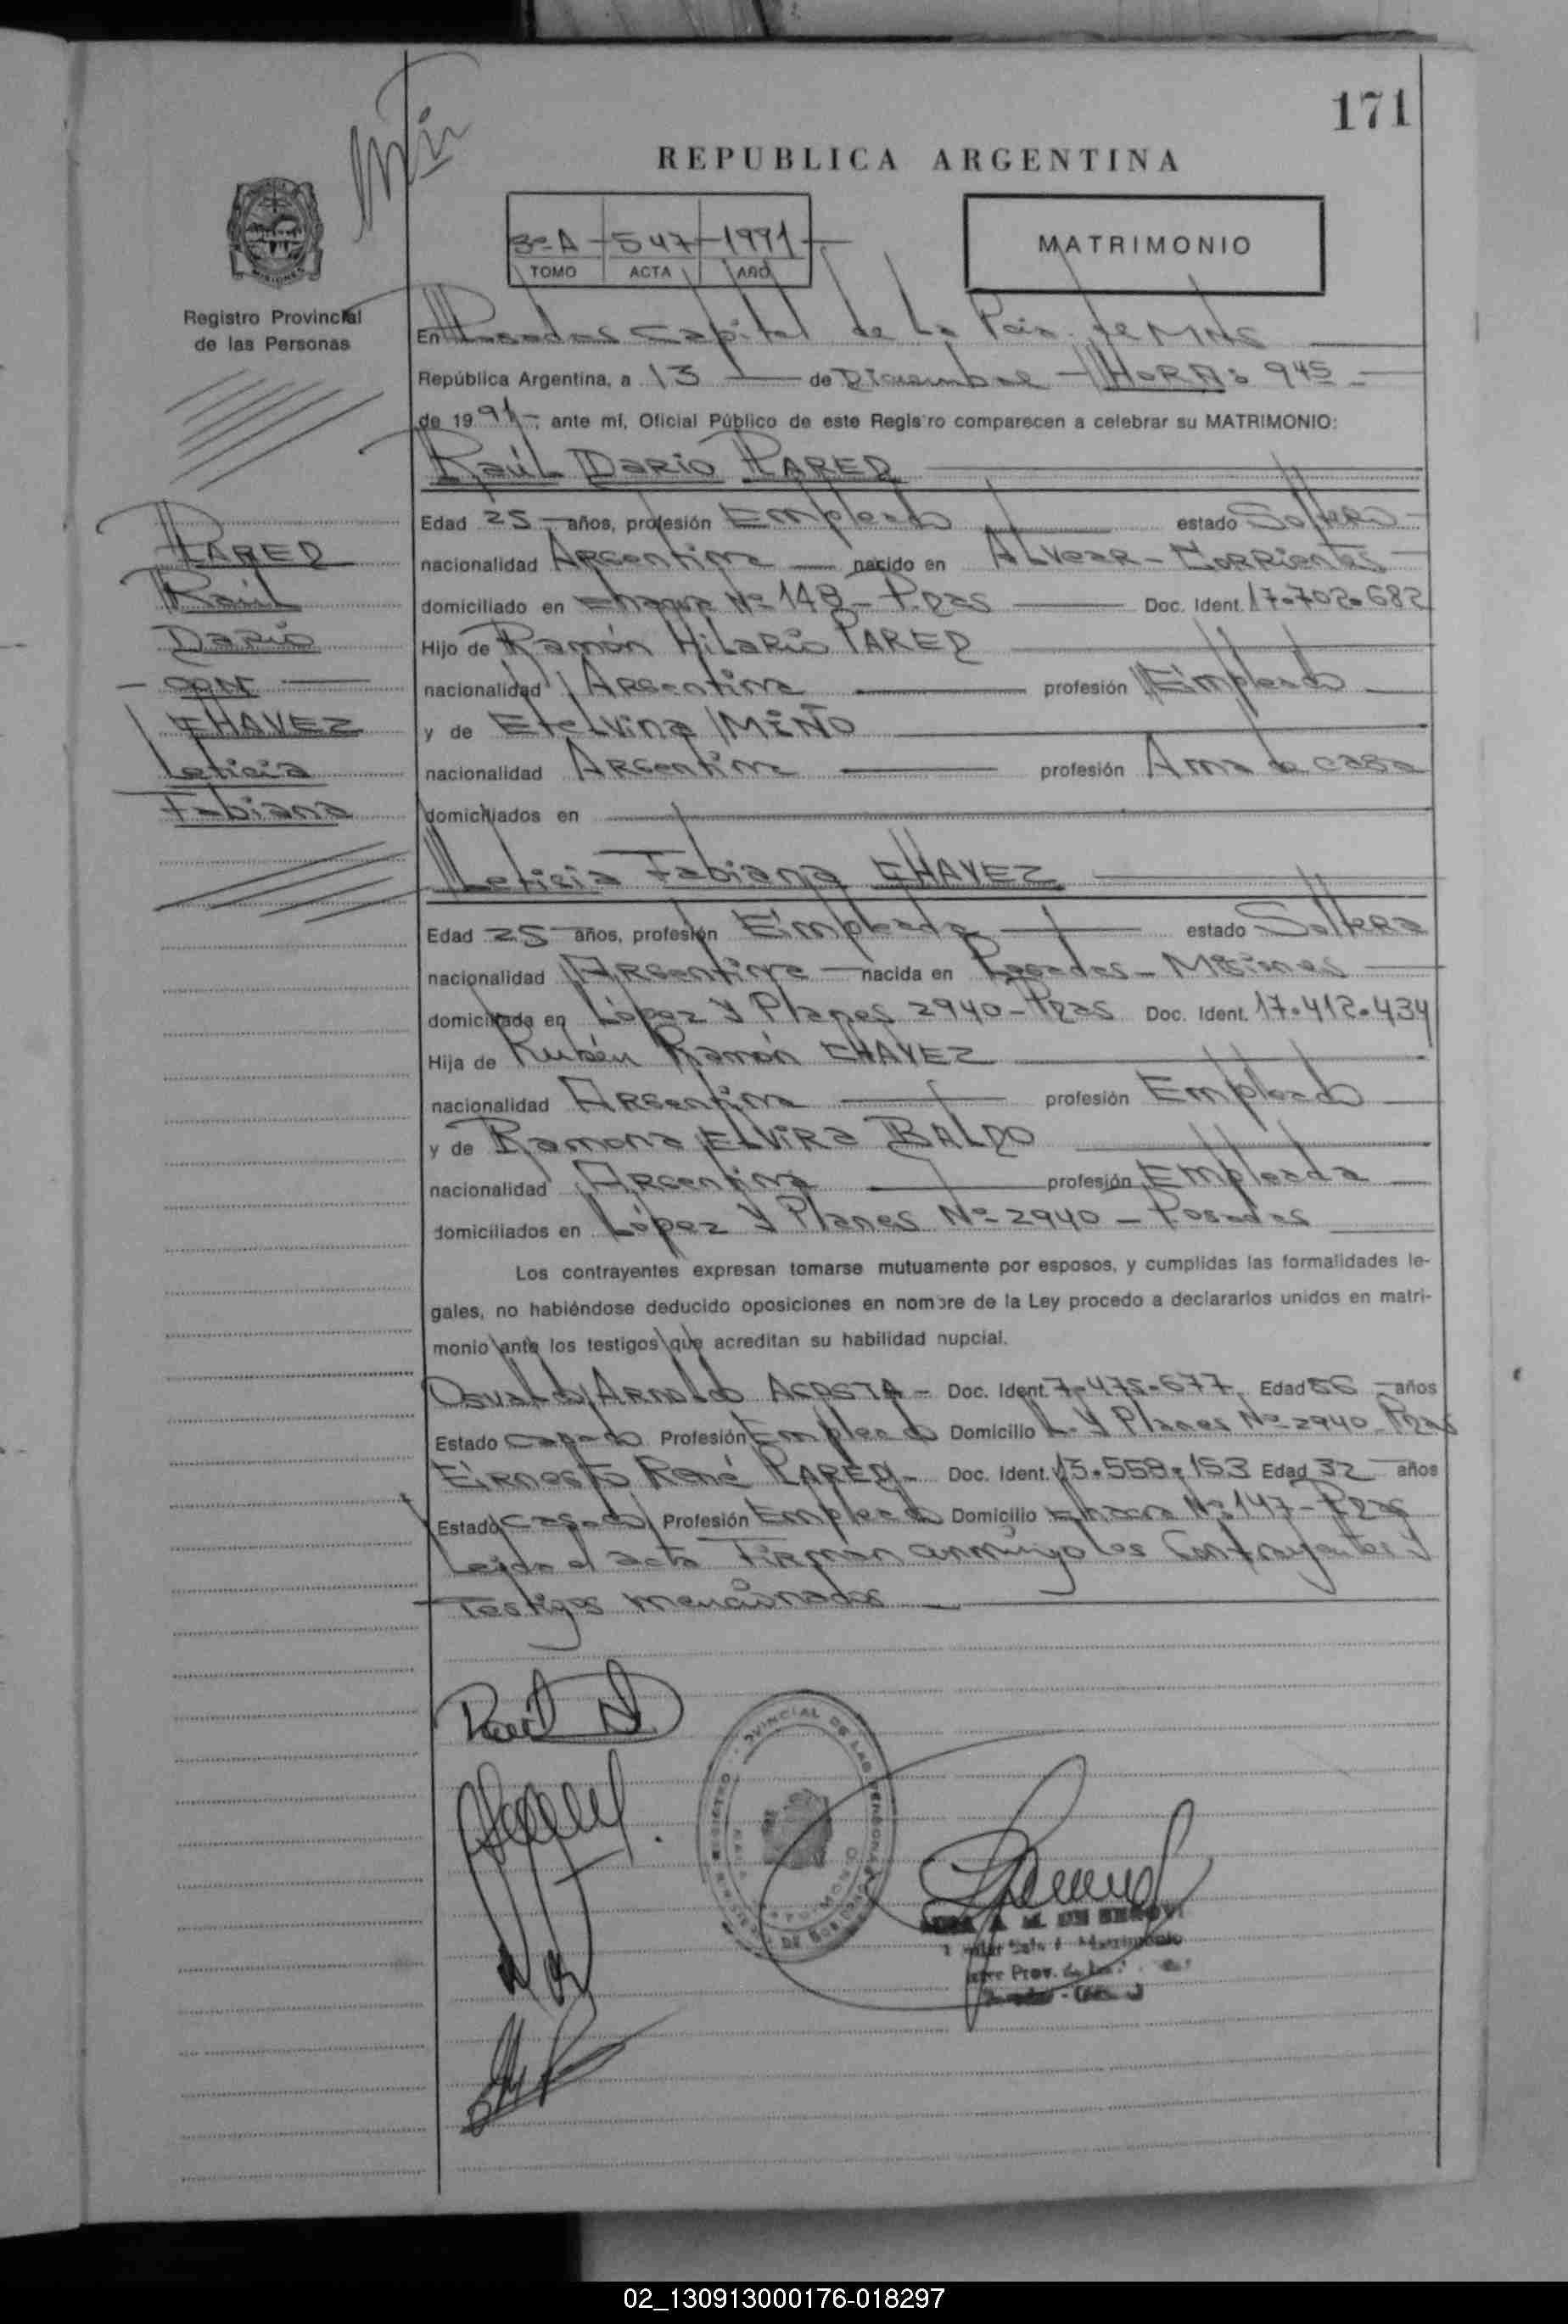 171
REPUBLICA ARGENTINA
3º A - 547 - 1991
TOMO ACTA AÑO
MATRIMONIO
MISIONES
Registro Provincial
de las Personas
En Posadas Capital de La Pcia. de MNS
República Argentina, a 13 de Diciembre - HORA: 945
de 1991, ante mí, Oficial Público de este Registro comparecen a celebrar su MATRIMONIO:
Raúl Dario PARED
Edad 25 años, profesión Empleado estado Soltero
nacionalidad Argentina nacido en Alvear - Corrientes
domiciliado en Nº 148 - Pdas Doc. Ident. 17.702.682
Hijo de Ramón Hilario PARED
nacionalidad Argentina profesión Empleado
y de Etelvina MIÑO
nacionalidad Argentina profesión Ama de casa
domiciliados en
PARED
Raúl
Dario
- con -
CHAVEZ
Leticia
Fabiana
Leticia Fabiana CHAVEZ
Edad 25 años, profesión Empleada estado Soltera
nacionalidad Argentina nacida en Posadas - Misiones
domiciliada en López y Planes 2940 - Pdas Doc. Ident. 17.412.434
Hija de Rubén Ramón CHAVEZ
nacionalidad Argentina profesión Empleado
y de Ramona Elvira BALDO
nacionalidad Argentina profesión Empleada
domiciliados en López y Planes Nº 2940 - Posadas
Los contrayentes expresan tomarse mutuamente por esposos, y cumplidas las formalidades le-
gales, no habiéndose deducido oposiciones en nombre de la Ley procedo a declararlos unidos en matri-
monio ante los testigos que acreditan su habilidad nupcial.
Osvaldo Arnoldo ACOSTA - Doc. Ident. 7.475.677 Edad 56 años
Estado casado Profesión Empleado Domicilio L. y Planes Nº 2940 - Pdas
Ernesto René PARED - Doc. Ident. 13.558.153 Edad 32 años
Estado casado Profesión Empleado Domicilio Nº 147 - Pdas
Leida el acta Firman conmigo los Contrayentes y
Testigos mencionados
02_130913000176-018297